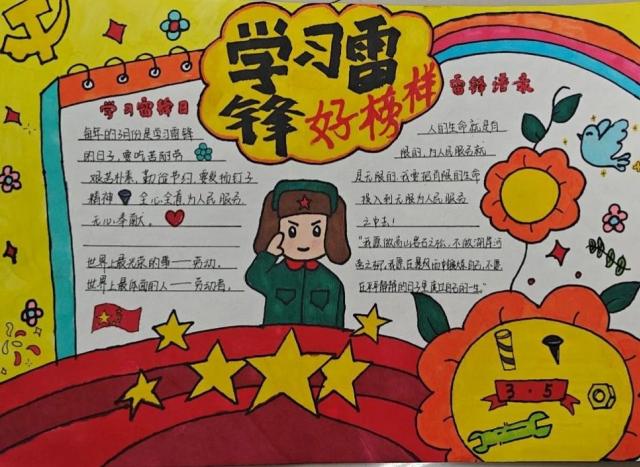 学习雷
锋
好榜样
学习雷锋日
每年的3月份是学习雷锋
的日子，要吃苦耐劳
艰苦朴素，勤俭节约，要发扬钉子
精神 全心全意为人民服务
无心奉献。
世界上最光荣的事——劳动。
世界上最体面的人——劳动者。
雷锋语录
人的生命就是有
限的，为人民服务就
是无限的，我要把有限的生命
投入到无限为人民服务
之中去！
"我愿做高山岩石之松，不做湖岸河
畔之柳，我愿在暴风雨中锻炼自己，不愿
在平平静静的日子里度过自己的一生"
3·5